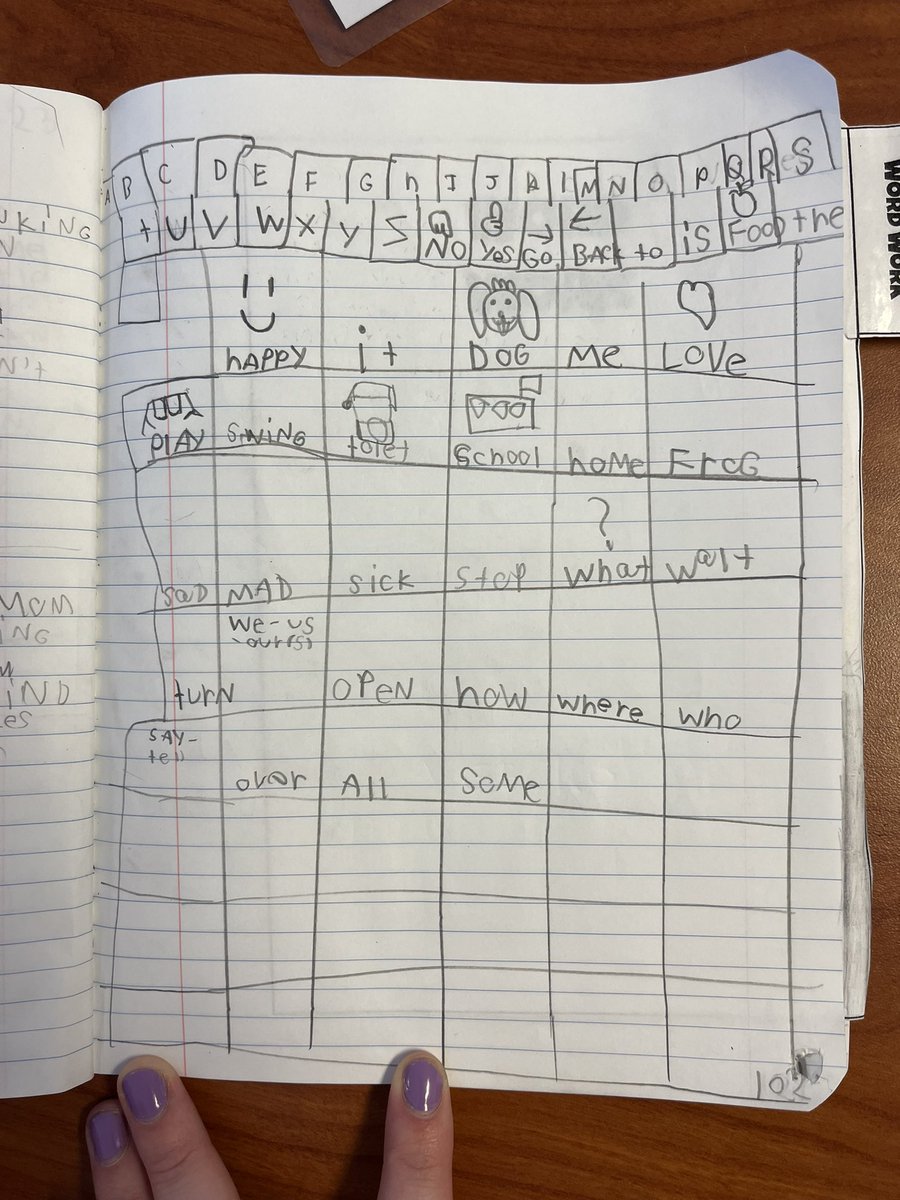 A B C D E F G h I J k l M N O P Q R S
t U V W X Y Z NO Yes GO BACK to is Food the
hAPPY it DOG Me LOVe
PlAY SWiNG tolet School hoMe FroG
SaD MAD sick Stop ? what wait
we-us
ours
turN OPeN how where who
SAY-
tell
over All SoMe
102
WORD WORK
UKiNG
N't
MOM
iNG
iND
es